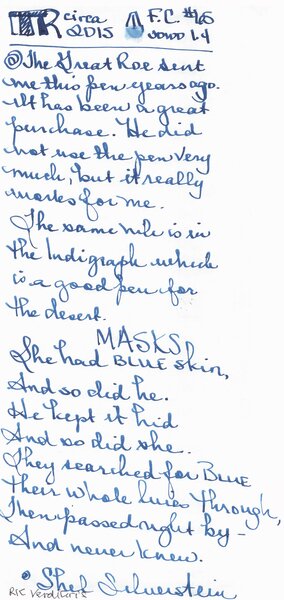 TTR circa 2015 F.C. #165 JOWO 1.4
@The Great Roe sent
me this pen years ago.
It has been a great
purchase. He did
not use the pen very
much, but it really
works for me.
The same nib is in
the Indigraph which
is a good pen for
the desert.
MASKS
She had BLUE skin,
And so did he.
He kept it hid
And so did she.
They searched for BLUE
Their whole lives through,
Then passed right by -
And never knew.
• Shel Silverstein
R&K Verdigris